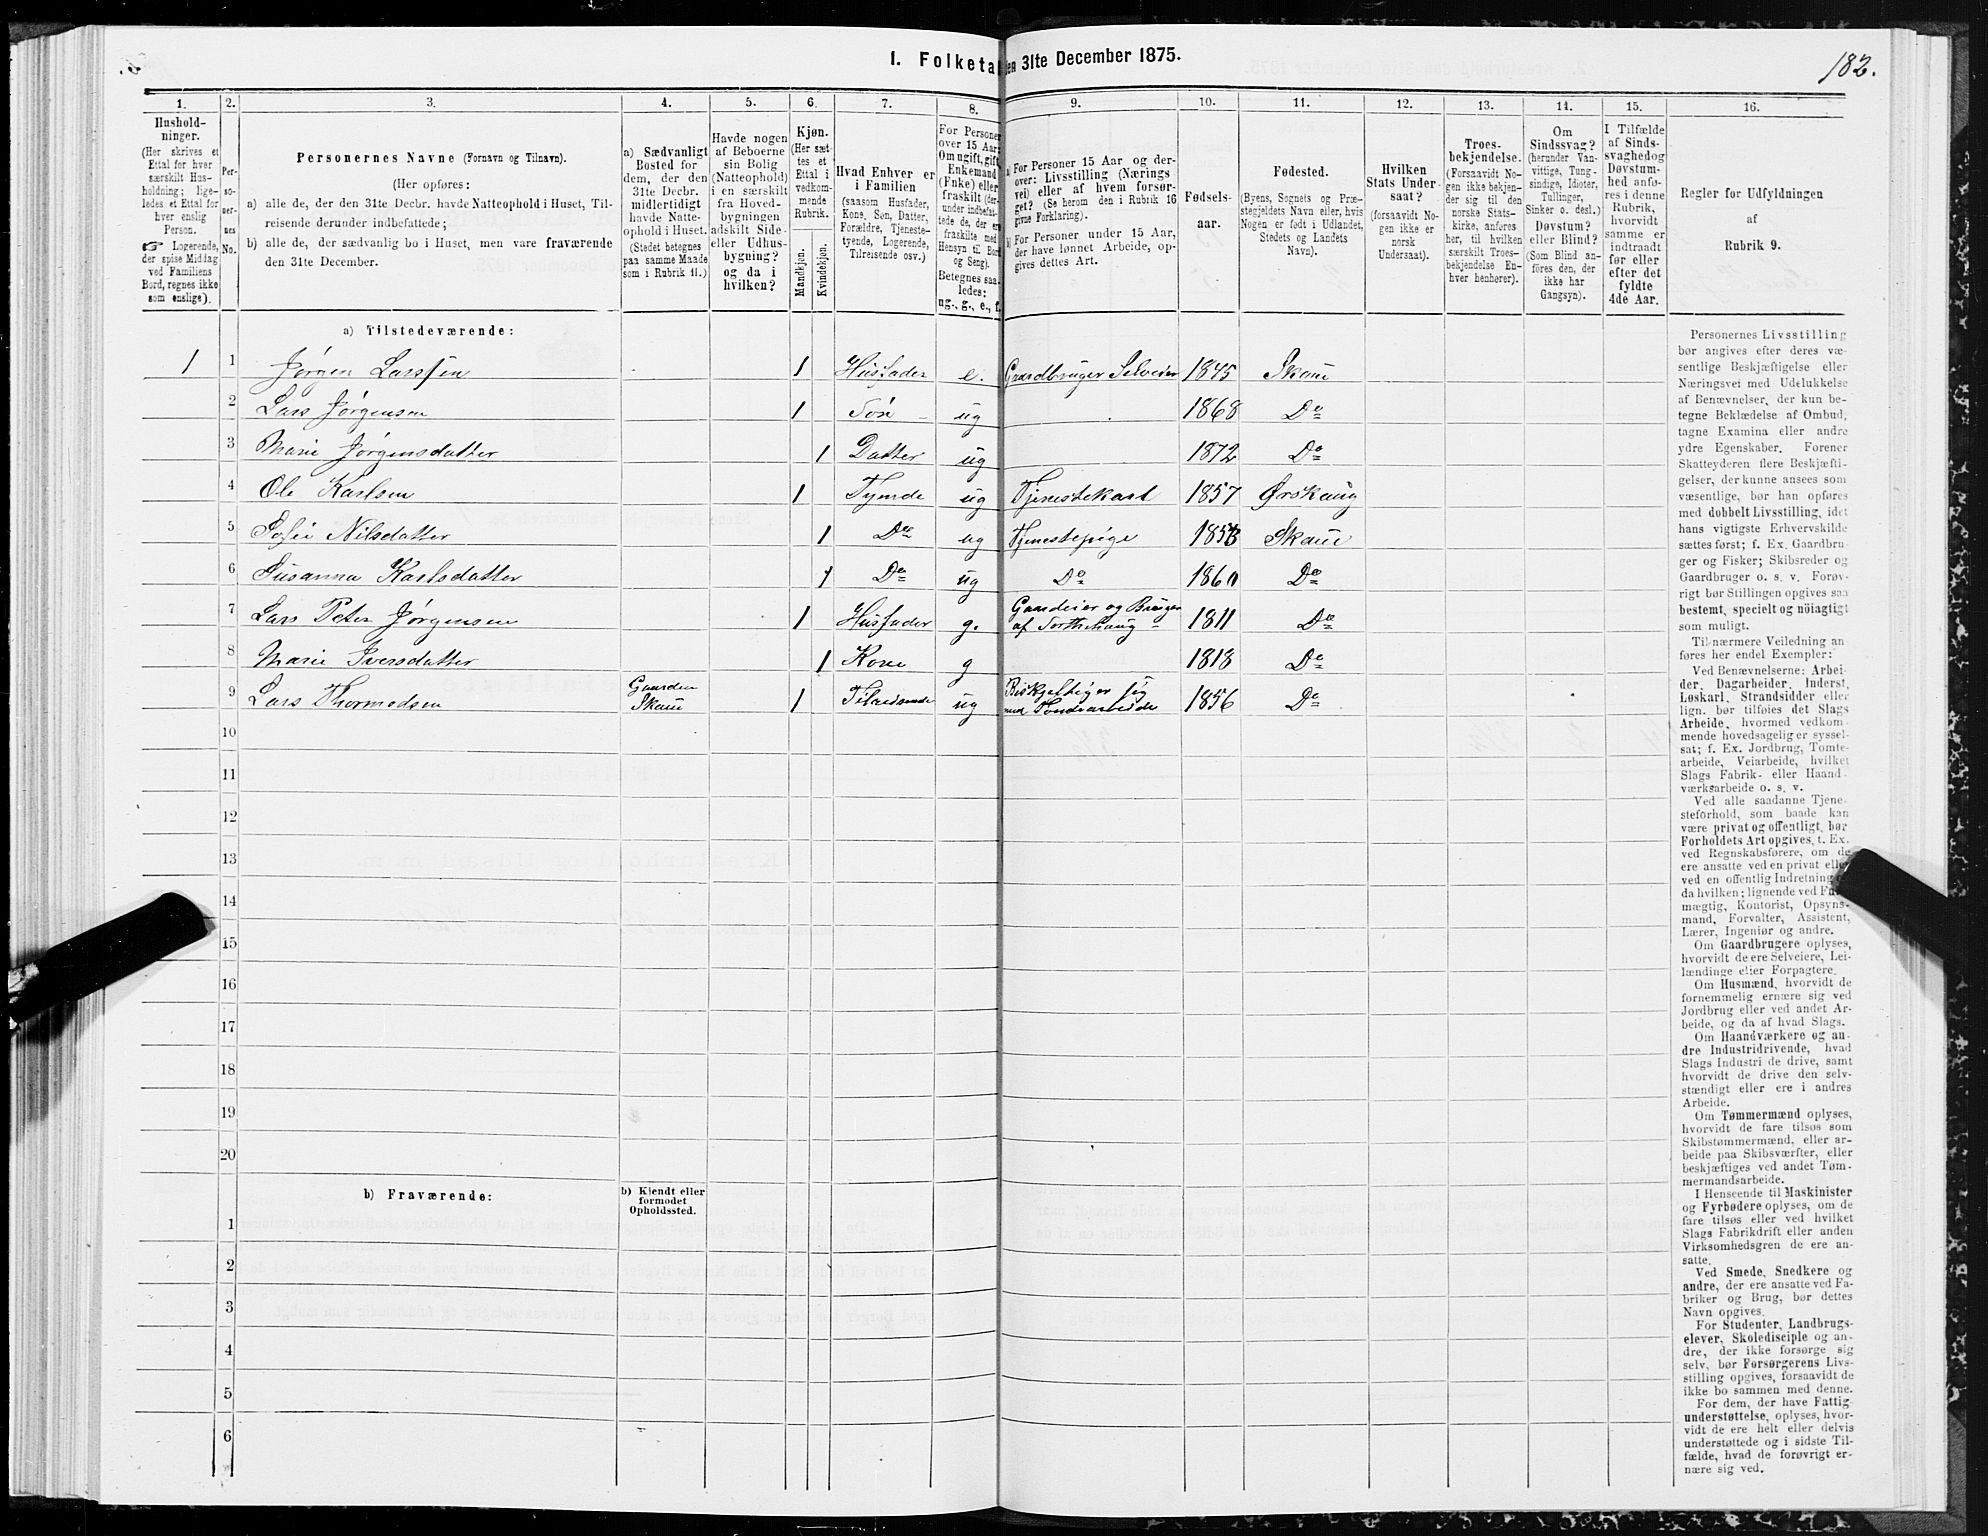 I. Folketa
en 31te December 1875.
182.
1.
2.
3.
4.
5.
6.
7.
8.
9.
10.
11.
12.
13.
14.
15.
16.
Hushold-
ninger.
(Her skrives et
Ettal for hver
særskilt Hus-
holdning; lige-
ledes et Ettal for
hver enslig
Person.
☞ Logerende,
der spise Middag
ved Familiens
Bord, regnes ikke
som enslige).
Per-
so-
ner-
nes
No.
Personernes Navne (Fornavn og Tilnavn).
(Her opføres:
a) alle de, der den 31te Decbr. havde Natteophold i Huset, Til-
reisende derunder indbefattede;
b) alle de, der sædvanlig bo i Huset, men vare fraværende
den 31te December.
a) Sædvanligt
Bosted for
dem, der den
31te Decbr.
midlertidigt
havde Natte-
ophold i Huset.
(Stedet betegnes
paa samme Maade
som i Rubrik 11.)
Havde nogen
af Beboerne
sin Bolig
(Natteophold)
i en særskilt
fra Hoved-
bygningen
adskilt Side-
eller Udhus-
bygning?
og da i
hvilken?
Kjøn.
(Her sæt-
tes et
Ettal i
vedkom-
mende
Rubrik.
Mandkjøn.
Kvindekjøn.
Hvad Enhver er
i Familien
(saasom Husfader,
Kone, Søn, Datter,
Forældre, Tjeneste-
tyende, Logerende,
Tilreisende osv.)
For Personer
over 15 Aar:
Om ugift, gift,
Enkemand
(Enke) eller
fraskilt (der-
under indbefat-
tede de, der er
fraskilte med
Hensyn til Bord
og Seng).
Betegnes saa-
ledes:
ug., g., e., f.
a) For Personer 15 Aar og der-
over: Livsstilling (Nærings
vei) eller af hvem forsør-
get? (Se herom den i Rubrik 16
givne Forklaring).
b) For Personer under 15 Aar,
der have lønnet Arbeide, op-
gives dettes Art.
Fødsels-
aar.
Fødested.
(Byens, Sognets og Præ-
stegjeldets Navn eller, hvis
Nogen er født i Udlandet,
Stedets og Landets
Navn).
Hvilken
Stats Under-
saat?
(forsaavidt No-
gen ikke er
norsk
Undersaat).
Troes-
bekjendelse.
(Forsaavidt No-
gen ikke bekjen-
der sig til den
norske Stats-
kirke, anføres
her, til hvilken
særskilt Troes-
bekjendelse En-
hver henhører).
Om
Sindssvag?
(herunder Van-
vittige, Tung-
sindige, Idioter,
Tullinger,
Sinker o. desl.)
Døvstum?
eller Blind?
(Som Blind an-
føres den, der
ikke har
Gangsyn).
I Tilfælde
af Sinds-
svaghedog
Døvstum-
hed anfø-
res i denne
Rubrik,
hvorvidt
samme er
indtraadt
før eller
efter det
fyldte
4de Aar.
Regler for Udfyldningen
af
Rubrik 9.
a) Tilstedeværende:
1 1 Jørgen Larssen 1 Husfader e. Gaardbruger Selveier 1845 Skaue
2 Lars Jørgensen 1 Søn ug 1868 Do
3 Marie Jørgensdatter 1 Datter ug 1872 Do
4 Ole Karlsen 1 Tyende ug Tjenestekarl 1857 Ørskaug
5 Sofie Nilsdatter 1 Do ug Tjenestepige 1853 Skaue
6 Susanna Karlsdatter 1 Do ug Do 1860 Do
7 Lars Peter Jørgensen 1 Husfader g. Gaardeier og Bruger
af 1811 Do
8 Marie Iversdatter 1 Kone g 1818 Do
9 Lars Thormodsen Gaarden
Skaue 1 Tilreisende ug Beskjeftiger sig
med 1856 Do
10
11
12
13
14
15
16
17
18
19
20
b) Fraværende:
b) Kjendt eller
formodet
Opholdssted.
1
2
3
4
5
6
Personernes Livsstilling
bør angives efter deres væ-
sentlige Beskjæftigelse eller
Næringsvei med Udelukkelse
af Benævnelser, der kun be-
tegne Beklædelse af Ombud,
tagne Examina eller andre
ydre Egenskaber. Forener
Skatteyderen flere Beskjæfti-
gelser, der kunne ansees som
væsentlige, bør han opføres
med dobbelt Livsstilling, idet
hans vigtigste Erhvervskilde
sættes først; f. Ex. Gaardbru-
ger og Fisker; Skibsreder og
Gaardbruger o. s. v. Forøv-
rigt bør Stillingen opgives saa
bestemt, specielt og nöiagtigt
som muligt.
Til nærmere Veiledning an-
føres her endel Exempler:
Ved Benævnelserne: Arbei-
der, Dagarbeider, Inderst,
Løskarl, Strandsidder eller
lign. bør tilføies det Slags
Arbeide, hvormed vedkom-
mende hovedsagelig er syssel-
sat; f. Ex. Jordbrug, Tomte-
arbeide, Veiarbeide, hvilket
Slags Fabrik- eller Haand-
værksarbeide o. s. v.
Ved alle saadanne Tjene-
steforhold, som baade kan
være privat og offentligt, bør
Forholdets Art opgives, f. Ex.
ved Regnskabsførere, om de
ere ansatte ved en privat eller
ved en offentlig Indretning og
da hvilken; lignende ved Fuld-
mægtig, Kontorist, Opsyns-
mand, Forvalter, Assistent,
Lærer, Ingeniør og andre.
Om Gaardbrugere oplyses,
hvorvidt de ere Selveiere, Lei-
lændinge eller Forpagtere.
Om Husmænd, hvorvidt de
fornemmelig ernære sig ved
Jordbrug eller ved andet Ar-
beide, og da af hvad Slags.
Om Haandværkere og an-
dre Industridrivende, hvad
Slags Industri de drive, samt
hvorvidt de drive den selv-
stændigt eller ere i andres
Arbeide.
Om Tømmermænd oplyses,
hvorvidt de fare tilsøs som
Skibstømmermænd, eller ar-
beide paa Skibsværfter, eller
beskjæftiges ved andet Tøm-
mermandsarbeide.
I Henseende til Maskinister
og Fyrbødere oplyses, om de
fare tilsøs eller ved hvilket
Slags Fabrikdrift eller anden
Virksomhedsgren de ere an-
satte.
Ved Smede, Snedkere og
andre, der ere ansatte ved Fa-
briker og Brug, bør dettes
Navn opgives.
For Studenter, Landbrugs-
elever, Skoledisciple og an-
dre, der ikke forsørge sig
selv, bør Forsørgerens Livs-
stilling opgives, forsaavidt de
ikke bo sammen med denne.
For dem, der have Fattig-
understøttelse, oplyses, hvor-
vidt de ere helt eller delvis
understøttede og i sidste Til-
fælde, hvad de forøvrigt er-
nære sig ved.